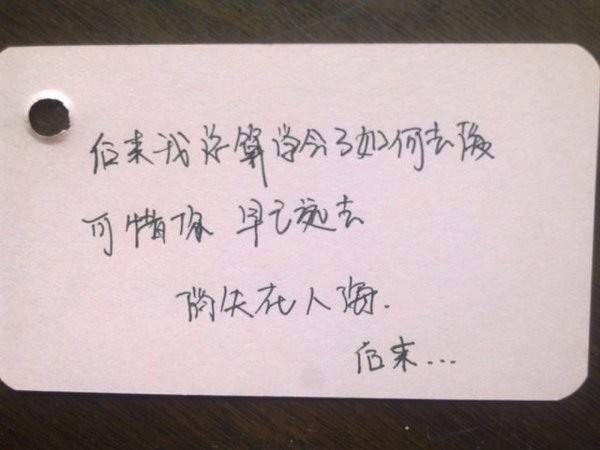 后来我总算学会了如何去爱
可惜你 早已远去
消失在人海.
后来...